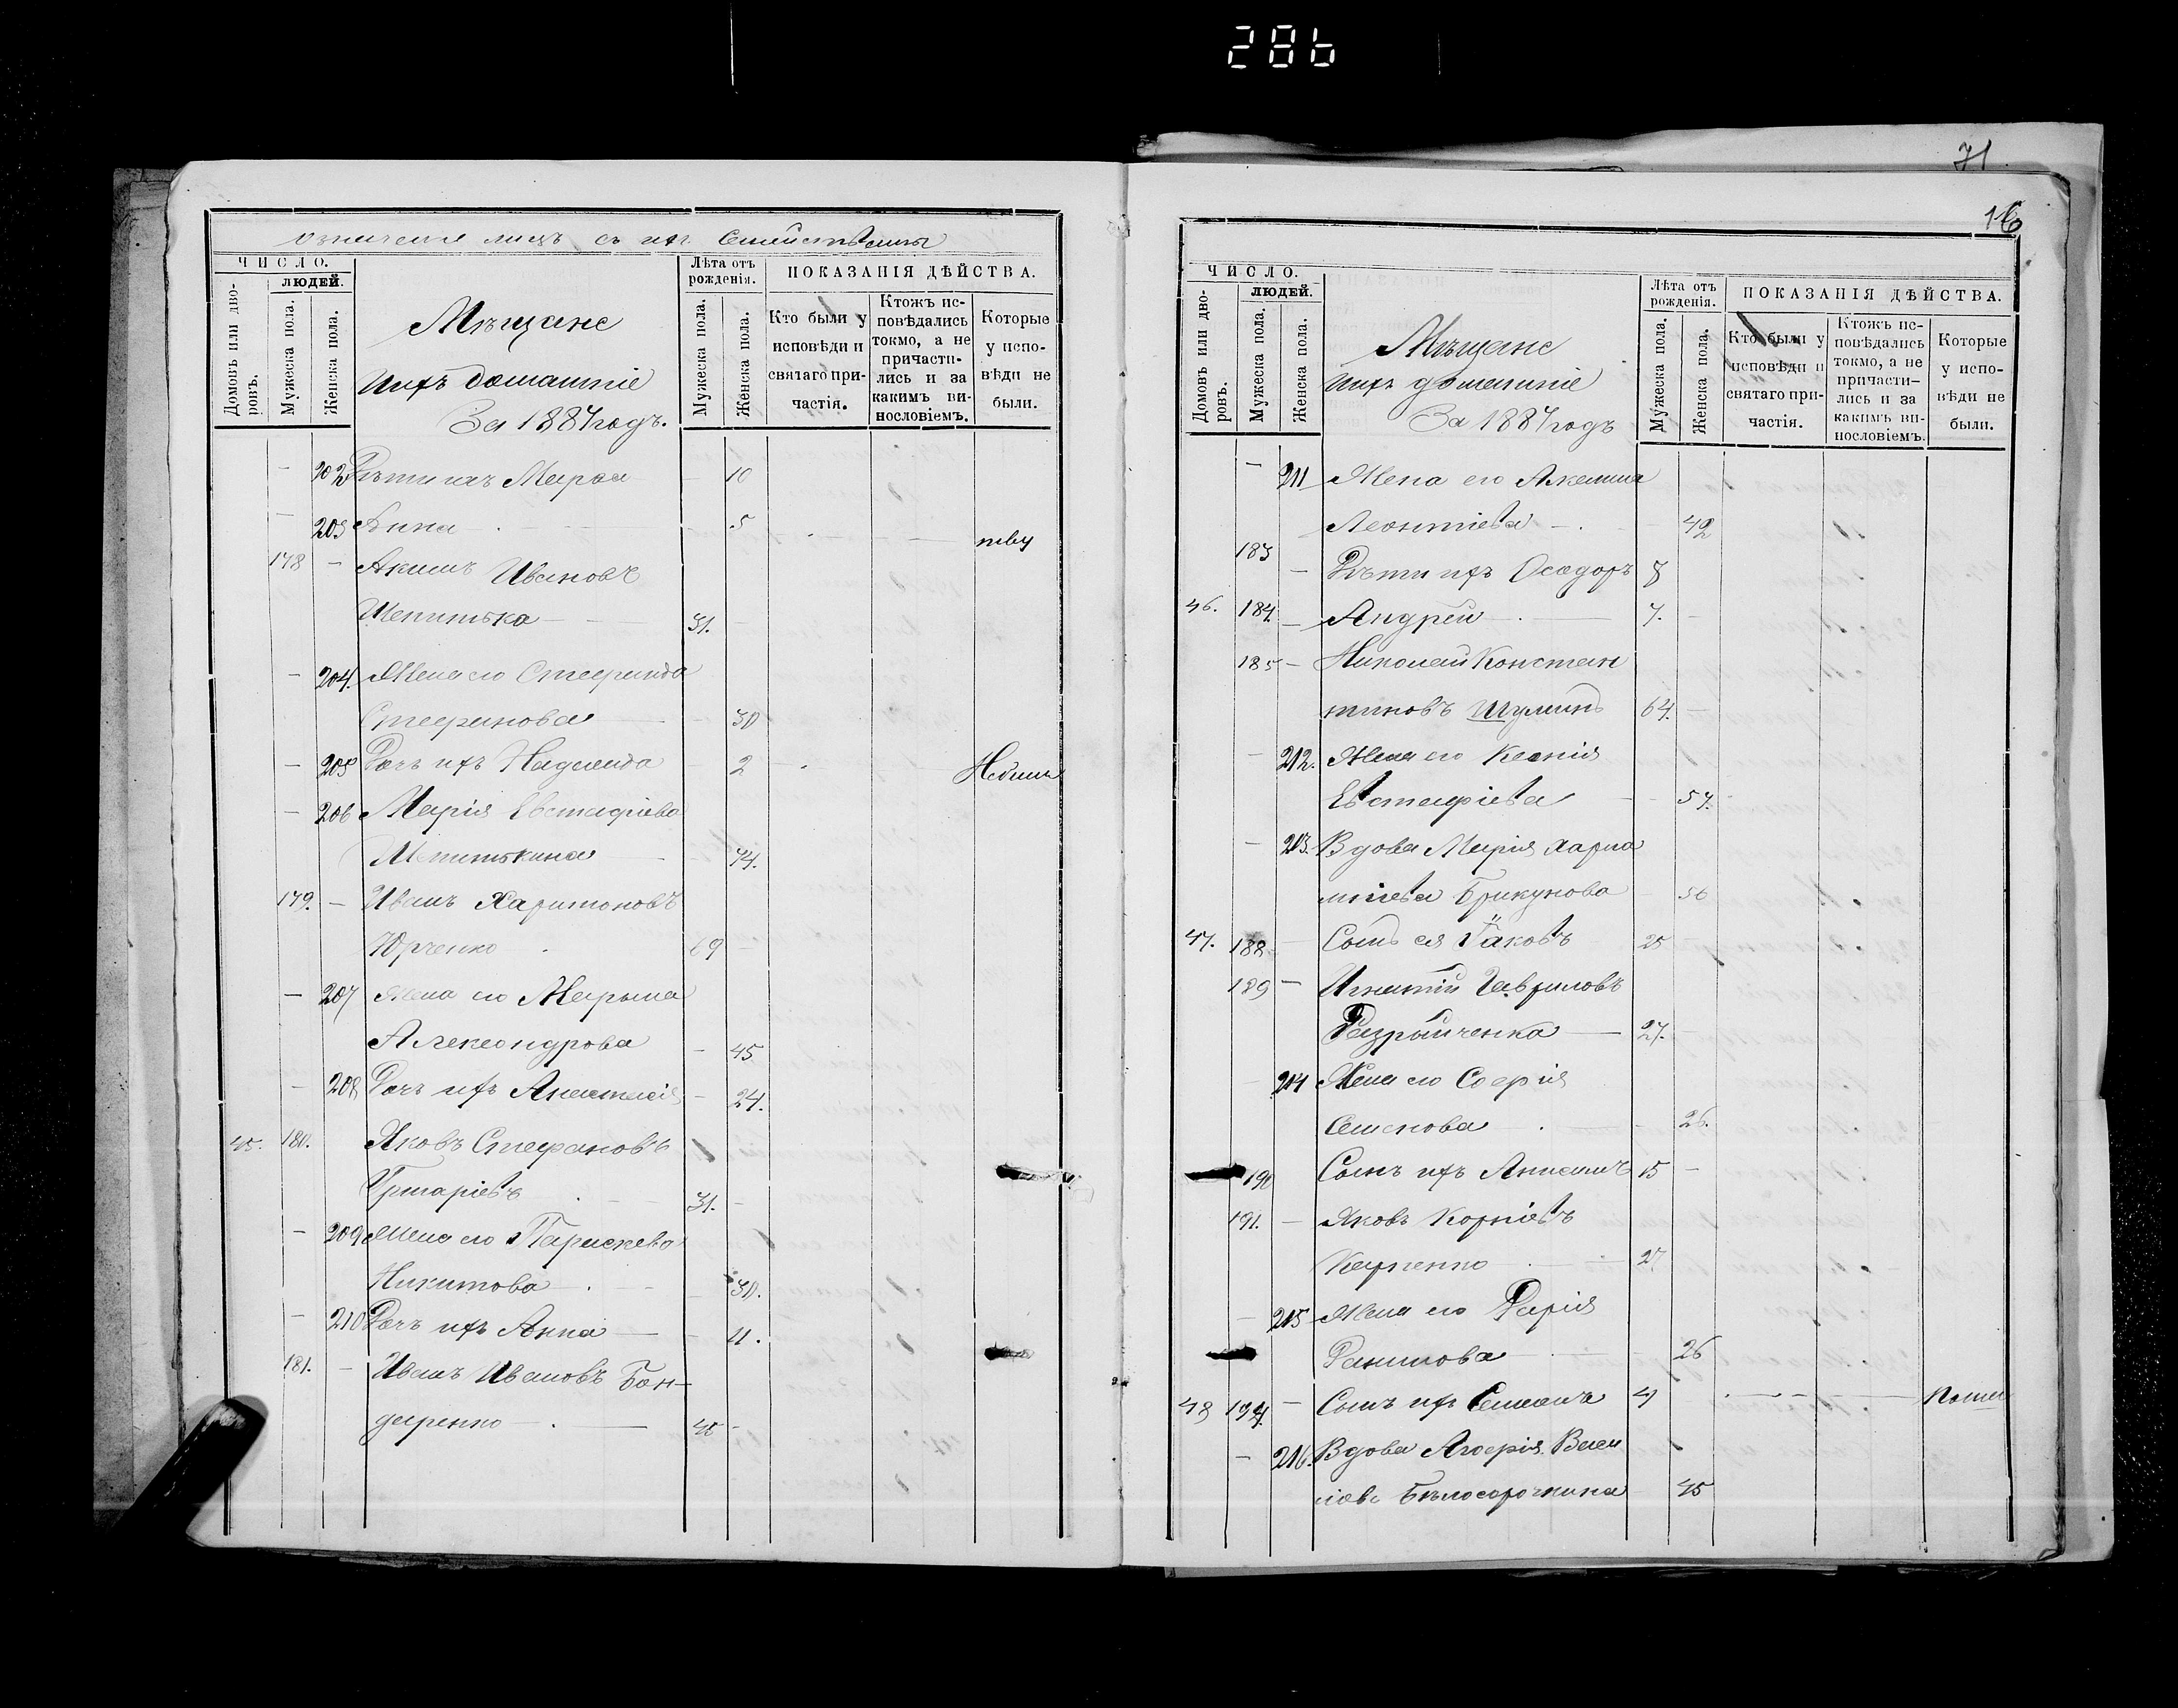 286
71
16
означеніе лицъ съ ихъ Семействами
ЧИСЛО.
ЛЮДЕЙ.
Домовъ или дворовъ.
Мужеска пола.
Женска пола.
Мѣщане
ихъ домашніе
За 1887 годъ.
Лѣта отъ рожденія.
Мужеска пола.
Женска пола.
ПОКАЗАНІЯ ДѢЙСТВА.
Кто были у исповѣди и святаго причастія.
Ктожъ исповѣдались токмо, а не причастились и за какимъ винословіемъ.
Которые у исповѣди не были.
— 202 Дѣти ихъ Марѳа — 10
— 203 Анна — 5
178 — Акимъ Ивановъ
Шепитька — 31. —
— 204. Жена его Стефанида
Стефанова — 30
— 205 Дочь ихъ Надежда — 2
— 206 Марія Евстафіева
Шепитькина — 74.
179. — Иванъ Харитоновъ
Юрченко 69 —
— 207 Жена его Марьма
Александрова — 45
— 208 Дочь ихъ Анастасія — 24.
45. 180. Яковъ Стефановъ
Григоріевъ 31. —
— 209 Жена его Параскева
Никитова — 30.
— 210 Дочь ихъ Анна — 11.
181. — Иванъ Ивановъ Бон-
даренко — 45 —
ЧИСЛО.
ЛЮДЕЙ.
Домовъ или дворовъ.
Мужеска пола.
Женска пола.
Мѣщане
ихъ домашніе
За 1887 годъ
Лѣта отъ рожденія.
Мужеска пола.
Женска пола.
ПОКАЗАНІЯ ДѢЙСТВА.
Кто были у исповѣди и святаго причастія.
Ктожъ исповѣдались токмо, а не причастились и за какимъ винословіемъ.
Которые у исповѣди не были.
— 211 Жена его Акелина
Леонтіева — 42
183 — Дѣти ихъ Ѳеодоръ 8
46. 184. — Андрей — 7. —
185 — Николай Констан
тиновъ Шулинъ 64. —
— 212. Жена его Ксенія
Евстафіева — 57.
— 213. Вдова Марія Харла
мпіева Брикунова — 56
47. 188 — Сынъ ея Іаковъ 25
189 — Игнатій Гавриловъ
— 27. —
214 Жена его Софія
Семенова — 26.
190 Сынъ ихъ 15 —
191. — Яковъ Корніевъ
27
— 215 Жена его Дарія
Данилова — 26
48 194. — Сынъ ихъ Симеонъ 4
— 216. Вдова Агафія Васи
ліова Бѣлосорочкина 45